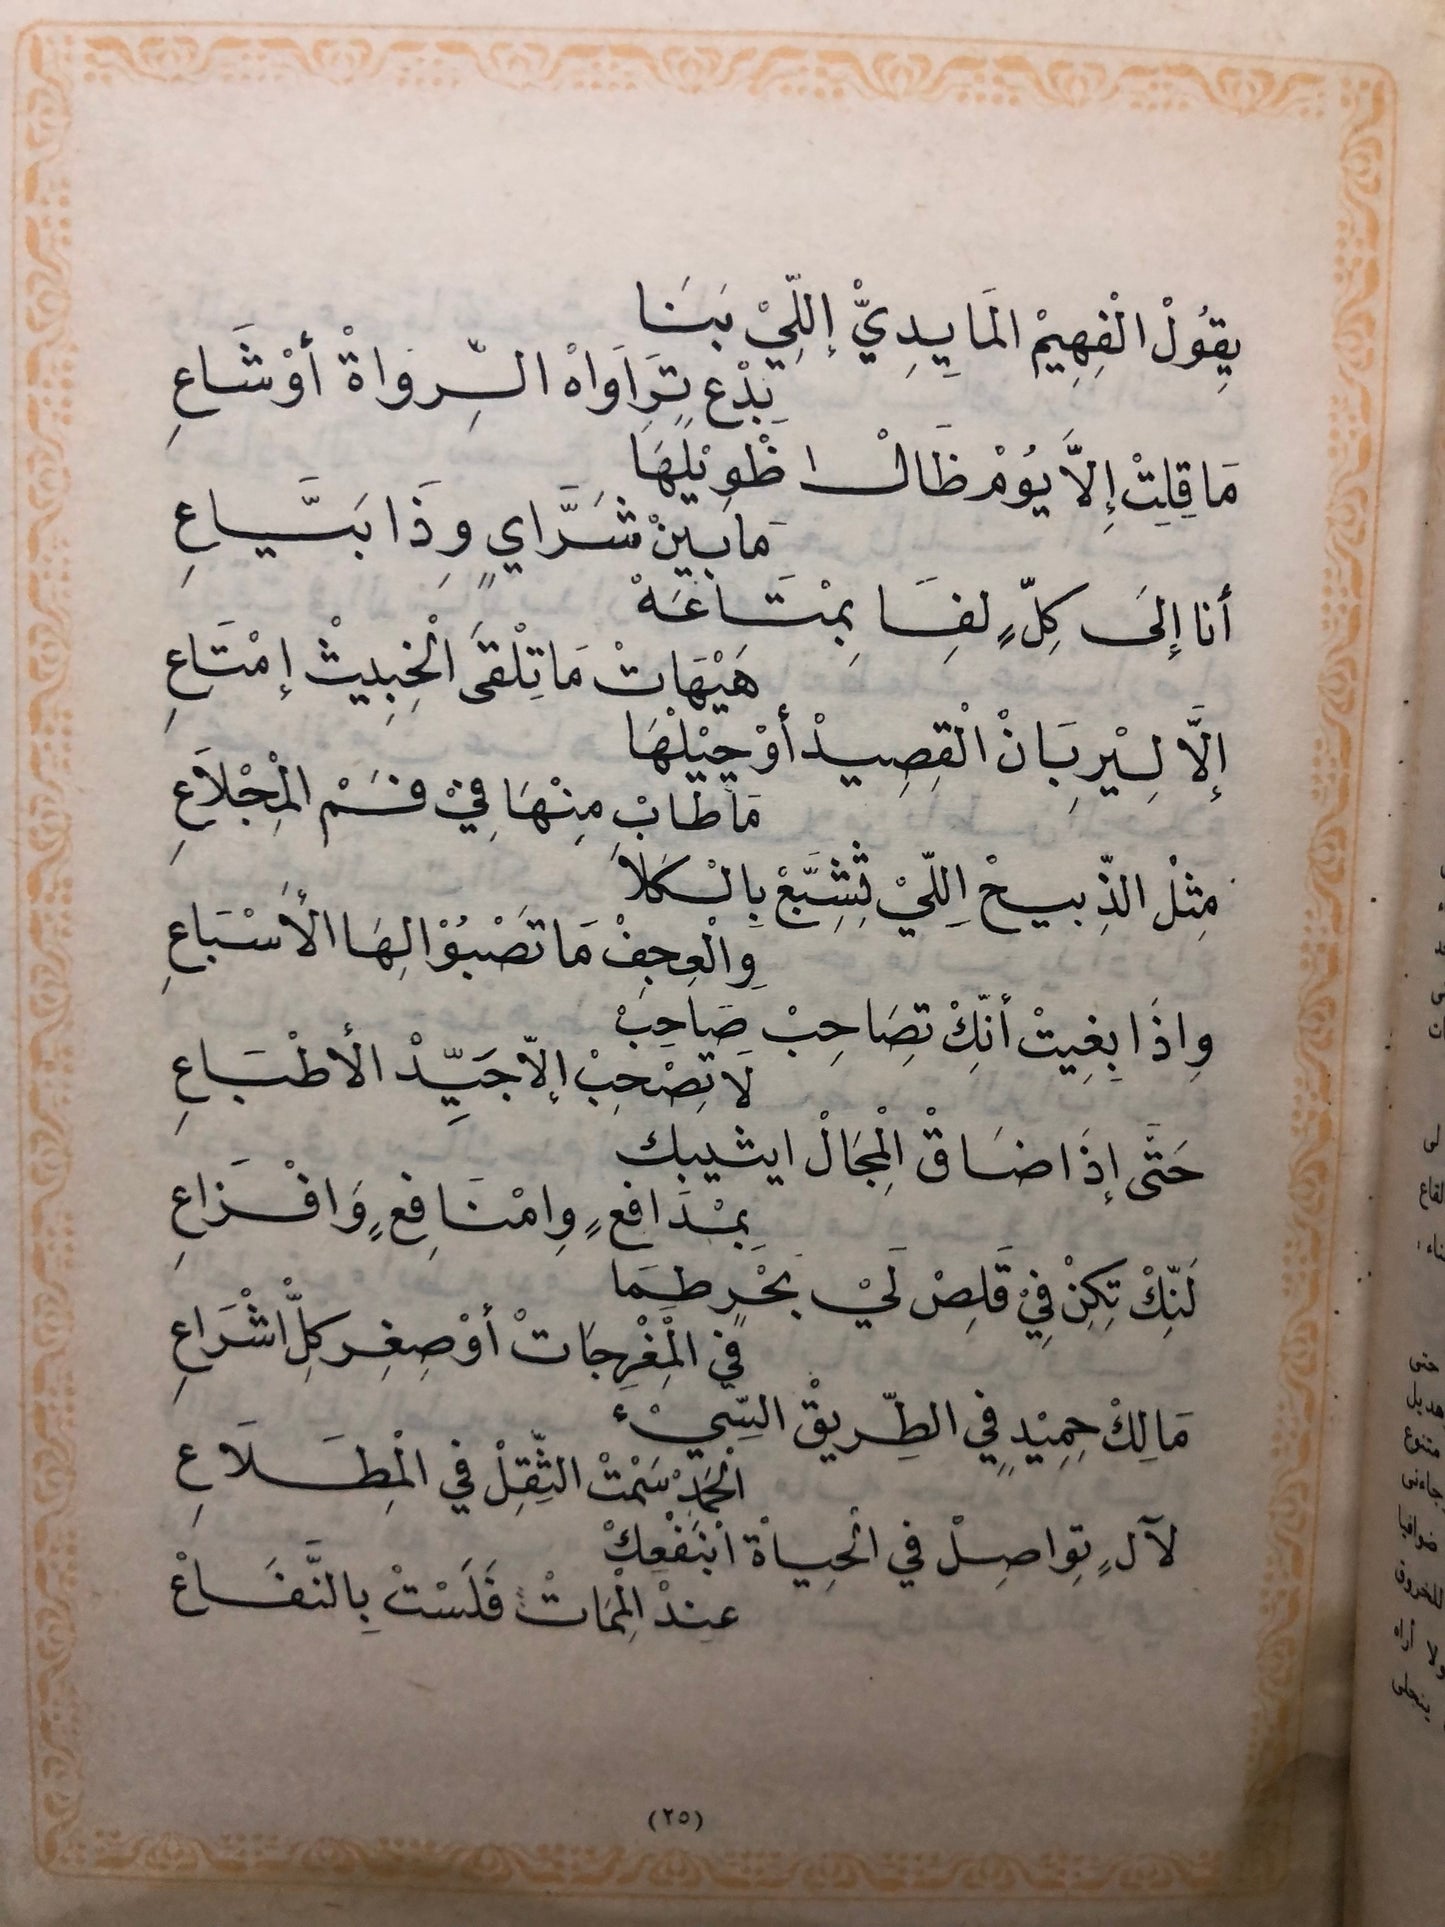 يِقُولْ الْفِهِيمْ المَايِدِيّْ إللِّيْ بَنَا
بِدْعٍ تِرَاوَاهْ الرِّوَاةْ أوْشَاعِ
مَا قِلِتْ إِلاَّ يُوْمْ ظَالْ ظْوِيْلِهَا
مَابَينْ شَرَّايٍ وِذَا بَيَّاعِ
أنا إِلَى كِلٍّ لِفَا بِمْتَاعَهْ
هَيْهَاتْ مَاتِلْقَى الْخِبِيثْ إمْتَاعِ
إلَّا لِيْرِبَانْ الْقِصِيدْ أوْجِيْلْهَا
مَاطَابْ مِنْهَا فِيْ فَمْ الْمِجْلاَعِ
مِثْلْ الذِّبيحْ اِللّيْ تْشَبَّعْ بِالْكَلاَ
وِالْعِجفْ مَا تَصْبُوْا لِهَا الأَسْبَاعِ
وِاذَا بِغِيتْ أنّكْ تِصَاحِبْ صَاحِبْ
لَا تِصْحِبْ إلاّ جَيِّدْ الأطْبَاعِ
حَتَّى إِذَا ضَاقْ الْمِجَالْ ايثيبك
بمْدَافعٍ وِامْنَافِعٍ وَافْزَاعِ
لَنّكْ تِكِنْ فِيْ قَلِصْ لَيْ بَحْرٍ طمَا
في الْمِغْرِجَاتْ أوْصِغِر كلّ اشْرَاعِ
مَالِكْ حِمِيْدٍ فِي الطِّرِيقْ السِّيْء
الْحَمَدْ سَمْتْ الثِّقِلْ فيْ الْمِطْلَاعِ
لآلٍ تِواصِلْ في الْحِيَاةْ ابْنَفْعِكْ
عِندْ الْمِمَاتْ فَلَسْتْ بِالنَّفَاعْ
(٢٥)
لى
لقاع
ناء :
حتى
هديل
متنوع
جاءنى
ضوافيا
للخروق
ولا أراه
ينجلى